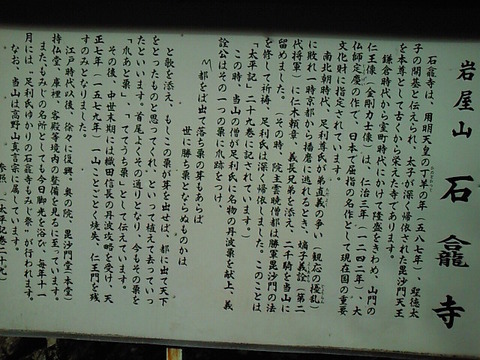 岩屋山 石龕寺
石龕寺は、用明天皇の丁羊の年(五八七年)、聖徳太
子の開基と伝えられ、太子が深く帰依された毘沙門天王
を本尊として古くから栄えた寺であります。
鎌倉時代から室町時代にかけて隆盛をきわめ、山門の
仁王像(金剛力士像)は、仁治三年(一二四二年)、大
仏師定慶の作で、日本で屈指の名作として現在国の重要
文化財に指定されています。
南北朝時代、足利尊氏が弟直義の争い(観応の擾乱)
に敗れ一時京都から播磨に逃れるとき、嫡子義詮(第二
代将軍)に仁木頼章、義長兄弟を添え、二千騎を当山に
留めました。その時、院主雲暁僧都は勝軍毘沙門の法
を修して祈祷、足利氏は深く帰依しました。このことは
「太平記」二十九巻に記されています。)
この時、当山の僧が足利氏に名物の丹波栗を献上、義
詮公はその一つの栗に爪跡をつけ、
都をば出て落ち栗の芽もあらば
世に勝ち栗とならぬものかは
と歌を添え、もしこの栗が芽を出せば、都に出て天下
をとったものと思ってくれ、といって植えて去っていっ
たといいます。首尾よくその通りとなり、今もその栗を
「爪あと栗」、「ててうち栗」として伝えています。
その後、中世末期には織田信長の丹波攻略を受け、天
正七年(一五七九年)一山ことごとく焼失、仁王門を残
すのみとなりました。
江戸時代以後、徐々に復興、奥の院、毘沙門堂(本堂)
持仏堂、庫裡、客殿等境内の整備を見るに至っています。
また、もみじの名所として今日脚光を浴び、毎年十一
月には"足利氏ゆかりの石龕寺もみじ祭"が行われます。
なお、当山は高野山真言宗に属しています。
参照、(太平記巻二十九)